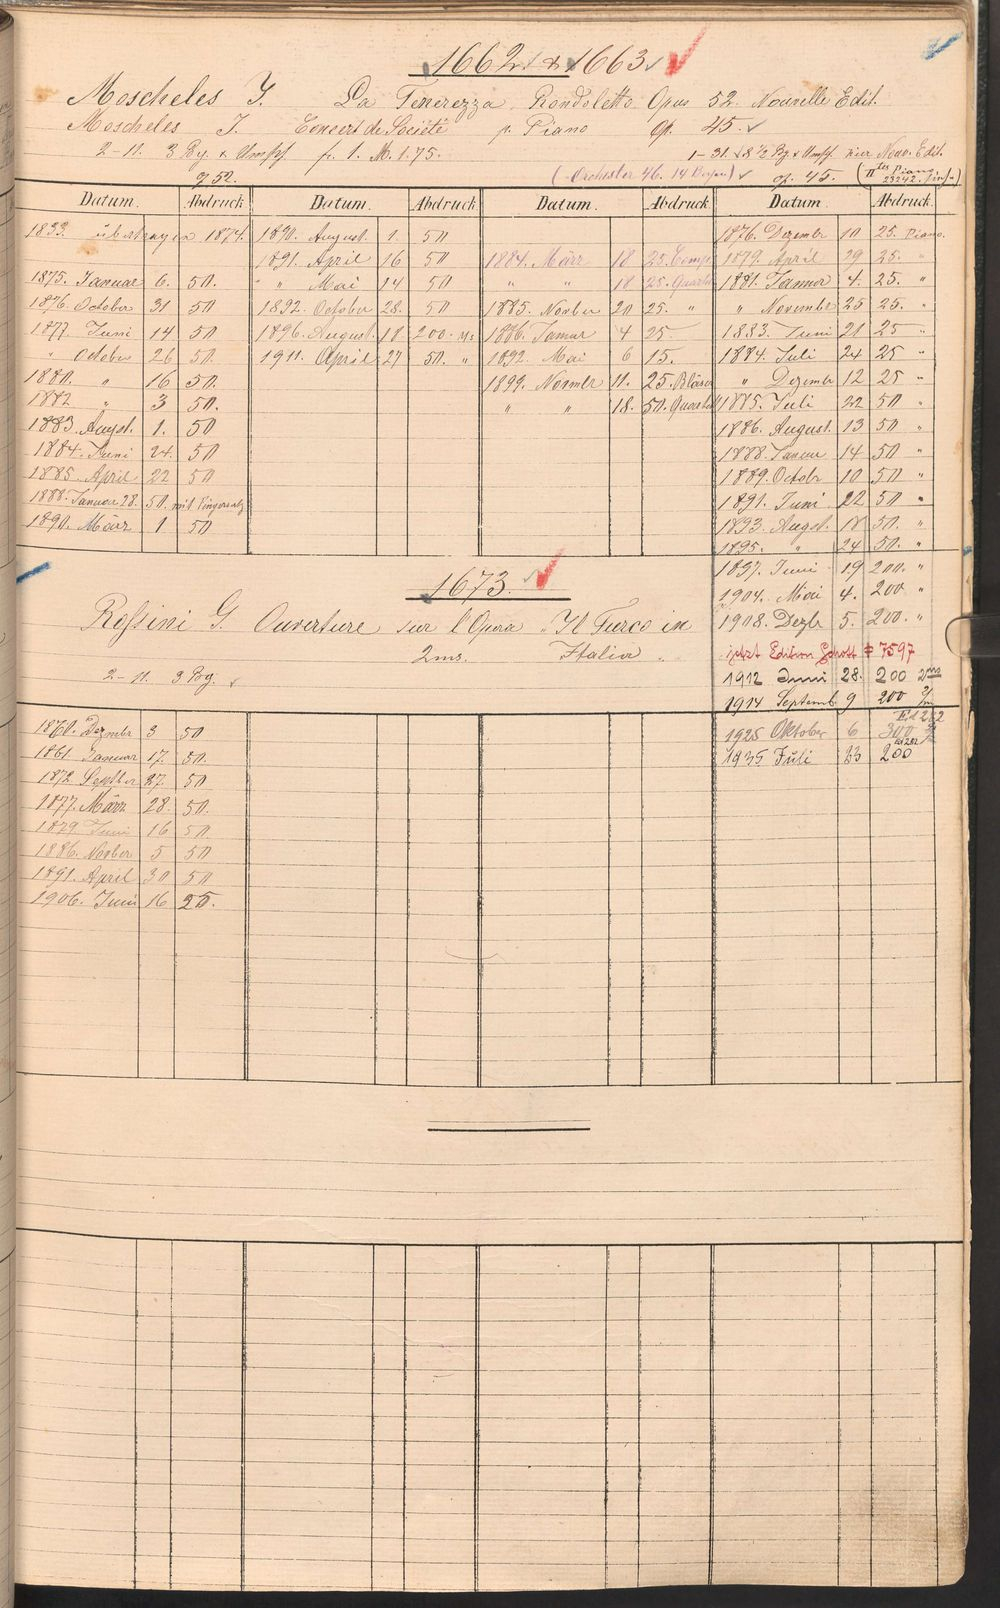 1662 & 1663
Moscheles I. La Tenerezza Rondoletto Opus 52. Nouvelle Edit.
Moscheles I. Concert de Société p. Piano op. 45.
2-11. 3 Bg. & Umschl. fr. 1. M. 1.75. 1-31. 8 1/2 Bg. & Umschl. hier Nouv. Edit.
op 52. (Orchester 46. 14 Bogen) op. 45. (IItes Piano 23242.)
Datum. Abdruck Datum. Abdruck Datum. Abdruck Datum. Abdruck
1833. übertragen 1874.
1875. Januar 6. 50.
1876. October 31 50
1877 Juni 14 50
" October 26 50.
1880. " 16 50.
1882 " 3 50.
1883. August. 1. 50
1884. Juni 24. 50
1885. April 22 50
1888. Januar 28. 50. mit Fingersatz
1890. März 1 50
1890. August. 1. 50
1891. April 16 50
" " Mai 14 50
1892. October 28. 50
1896. August. 18 200.
1911. April 27 50. "
1884. März 18 25.
" " 18 25. Quartett
1885. Novber 20 25. "
1886. Januar 4 25
1892. Mai 6 15.
1899. Novmbr 11. 25. Bläser
" " 18. 50. Quartett
1876. Dezembr 10 25. Piano.
1879. April 29 25. "
1881. Januar 4. 25. "
" Novembr 25 25. "
1883. Juni 21 25 "
1884. Juli 24 25 "
" Dezembr 12 25 "
1885. Juli 22 50 "
1886. August. 13 50 "
1888. Januar 14 50 "
1889. Octobr 10 50 "
1891. Juni 22 50 "
1893. August. 18 50. "
1895. " 24 50. "
1897. Juni 19 200. "
1904. Mai 4. 200 "
1908. Dezbr 5. 200. "
jetzt Edition Schott # 7597
1912 Juni 28. 200 2ms
1914 Septemb 9 200 2/m
1925 Oktober 6 300
1935 Juli 23 200
1673.
Rossini G. Ouverture sur l'Opera "Il Turco in
2ms. Italia".
2-11. 3 Bg.
1860. Dezmbr 3 50
1861. Januar 17. 50.
1872. Septber 27. 50
1877. März 28. 50.
1879. Juni 16 50.
1886. Novber 5 50
1891. April 30 50
1906. Juni 16 25.